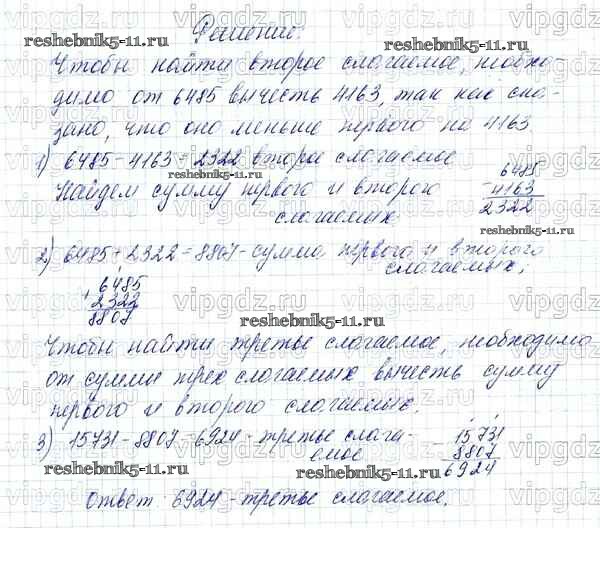 Решение:
Чтобы найти второе слагаемое, необхо-
димо от 6485 вычесть 4163, так как ска-
зано, что оно меньше первого на 4163.
1) 6485-4163=2322 второе слагаемые
6485
-4163
2322
Найдем сумму первого и второго
слагаемых
2) 6485+2322=8807-сумма первого и второго
слагаемых;
6485
+2322
8807
Чтобы найти третье слагаемое, необходимо
от суммы трех слагаемых вычесть сумму
первого и второго слагаемых.
3) 15731-8807=6924-третье слага-
емое
-15731
8807
6924
Ответ: 6924-третье слагаемое.
vipgdz.ru
reshebnik5-11.ru
reshebnik5-11.ru
reshebnik5-11.ru
reshebnik5-11.ru
reshebnik5-11.ru
reshebnik5-11.ru